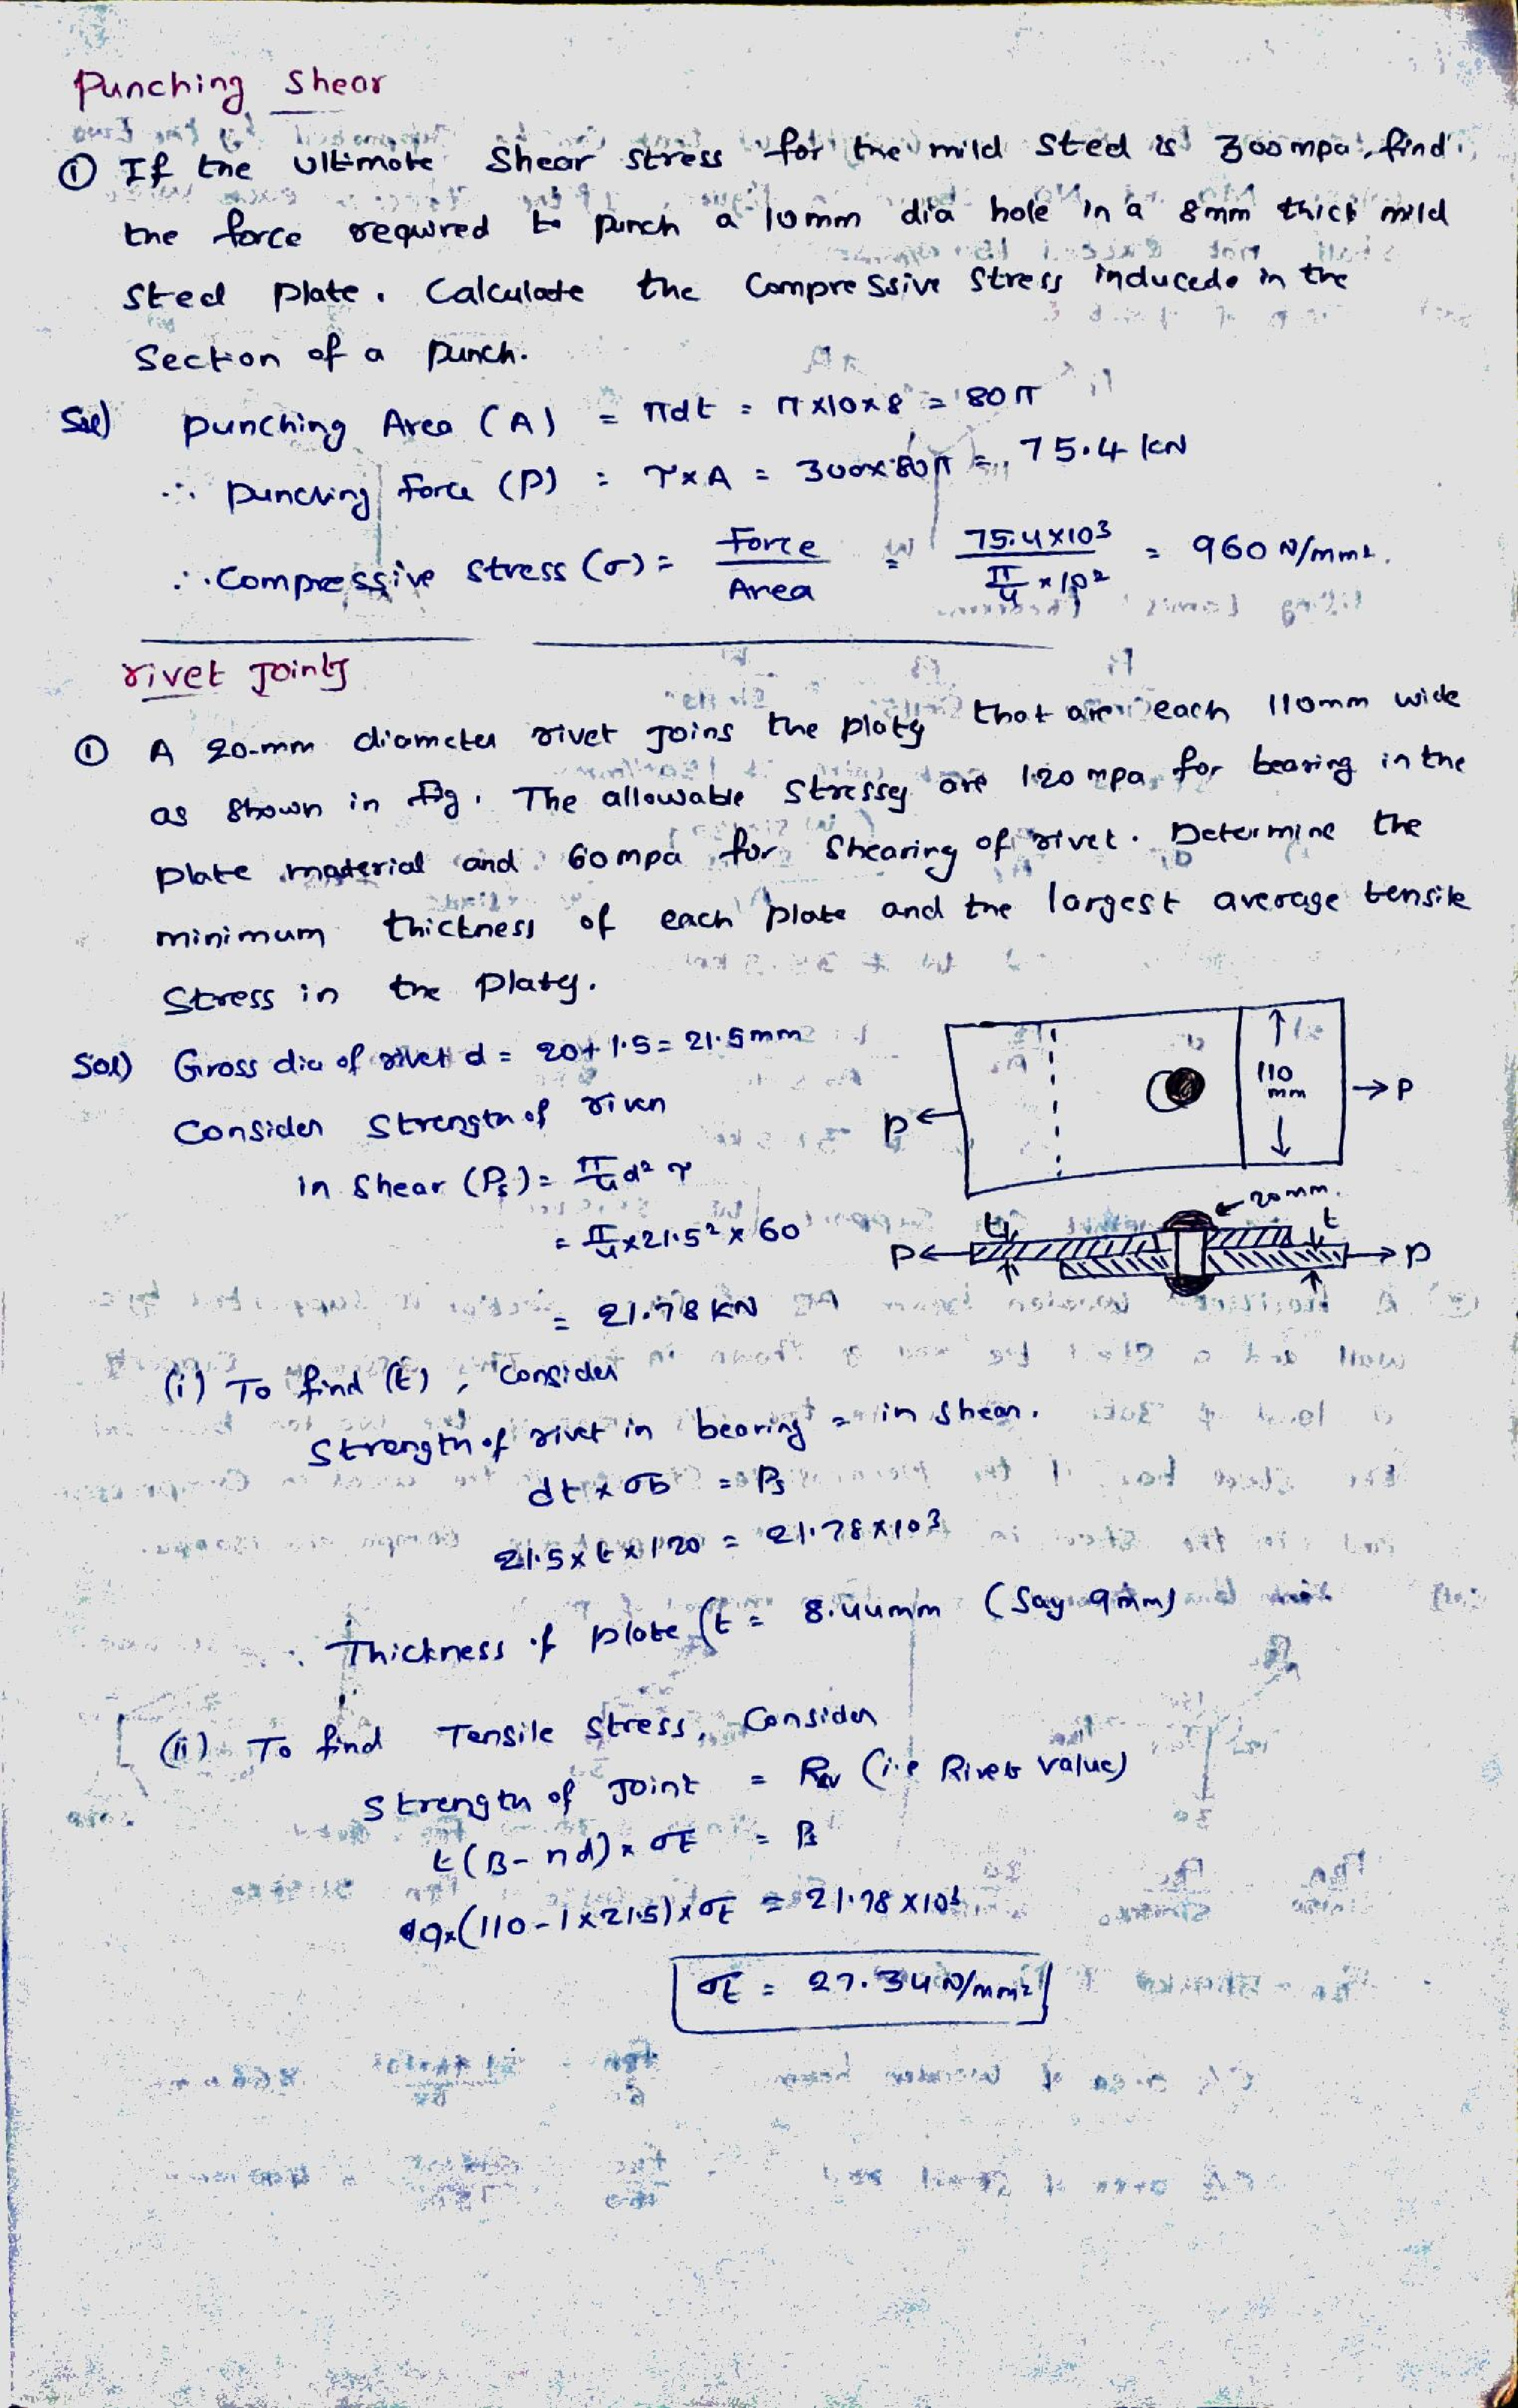 Punching Shear
① If the ultimate Shear stress for the mild steel is 300mpa, find
the force required to punch a 10mm dia hole in a 8mm thick mild
Steel plate. Calculate the Compressive Stress induced in the
Section of a punch.
Sol) punching Area (A) = πdt = π×10×8 = 80π
∴ punching force (P) = τ×A = 300×80π = 75.4 kN
∴ Compressive stress (σ) = Force/Area = 75.4×10³/(π/4 × 10²) = 960 N/mm².
rivet Joints
① A 20-mm diameter rivet joins the plates that are each 110mm wide
as shown in fig. The allowable stresses are 120 mpa for bearing in the
plate material and 60mpa for Shearing of rivet. Determine the
minimum thickness of each plate and the largest average tensile
Stress in the plates.
Sol) Gross dia of rivet d = 20+1.5 = 21.5mm
Consider Strength of riven
in Shear (Ps) = π/4 d² τ
= π/4 × 21.5² × 60
= 21.78 KN
110 mm
P
P
20mm.
t
t
P
P
(i) To find (t), Consider
Strength of rivet in bearing = in shear.
dt × σb = Ps
21.5 × t × 120 = 21.78×10³
∴ Thickness of plate (t = 8.44mm (Say 9mm)
(ii) To find Tensile stress, Consider
Strength of Joint = Rv (i.e Rivet value)
t(B-nd) × σt = Ps
9×(110-1×21.5)×σt = 21.78×10³
σt = 27.34 N/mm²